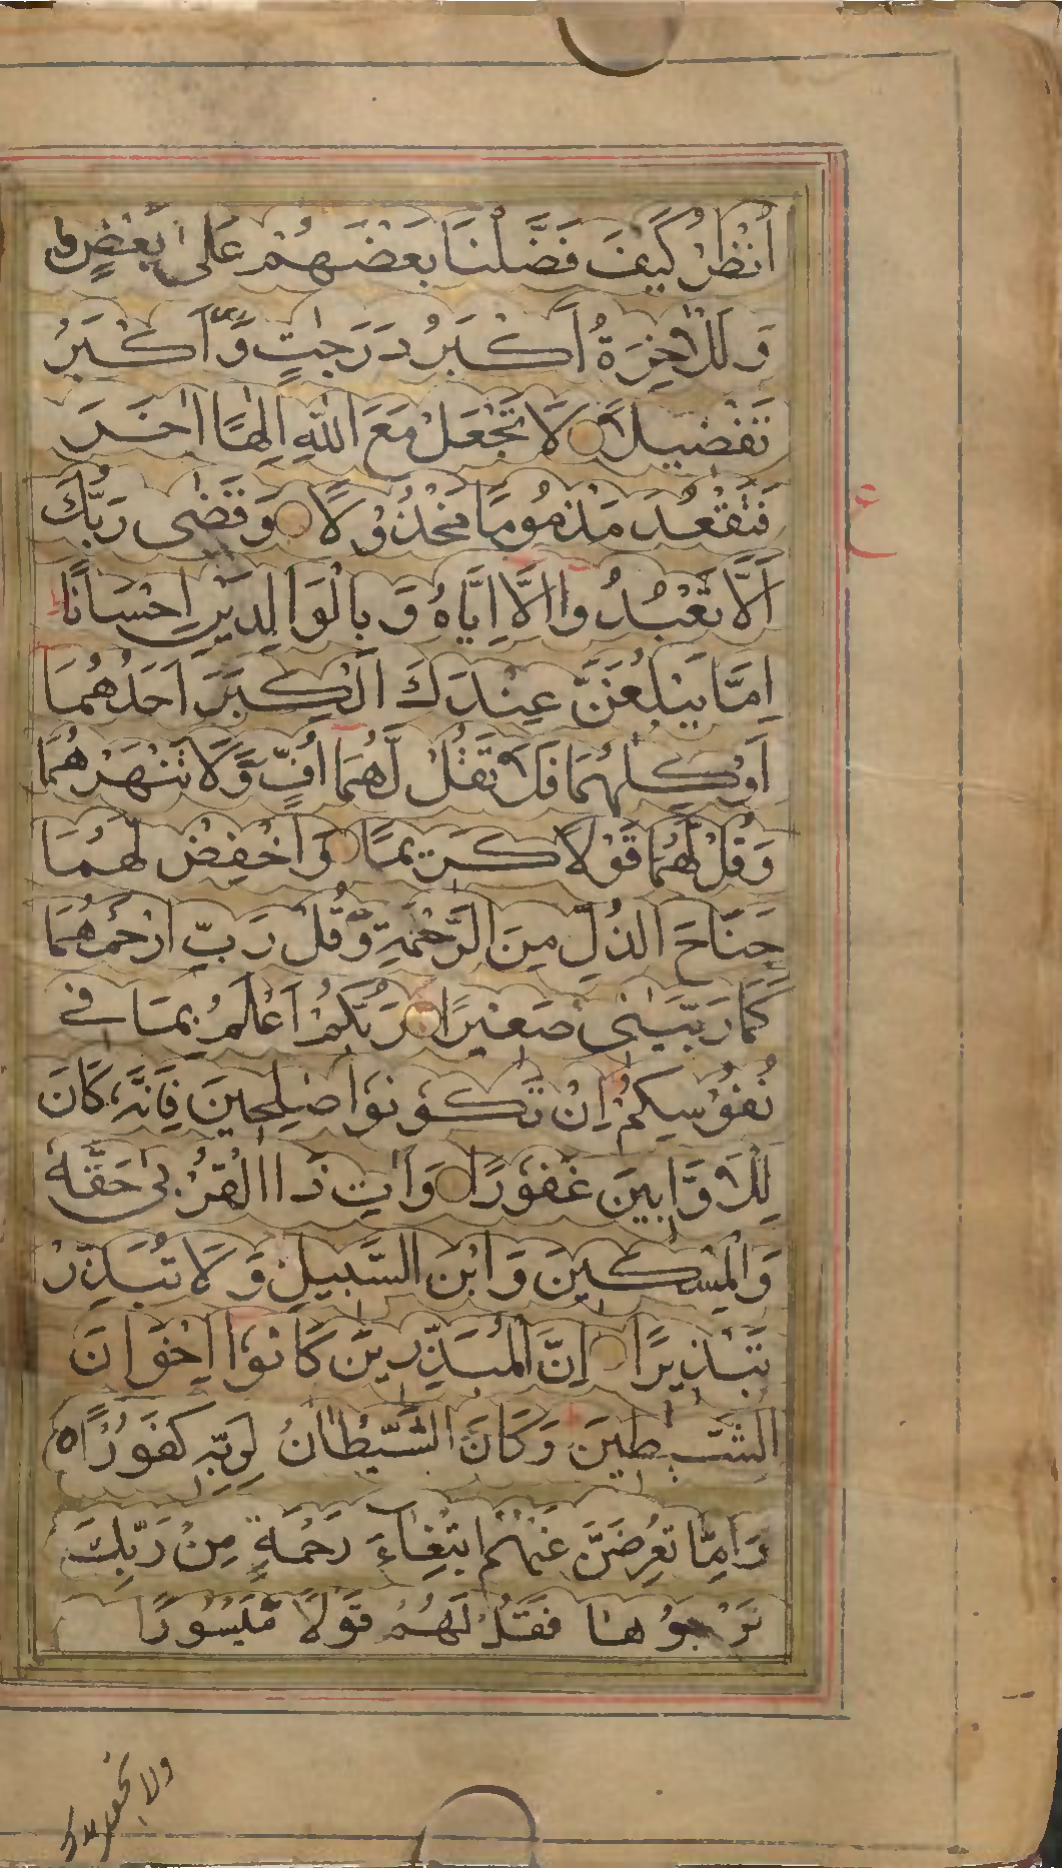 اُنْظُرْ كَيْفَ فَضَّلْنَا بَعْضَهُمْ عَلٰى بَعْضٍ ط
وَلَلْاٰخِرَةُ اَكْبَرُ دَرَجٰتٍ وَّاَكْبَرُ
تَفْضِيْلًا ۝ لَا تَجْعَلْ مَعَ اللّٰهِ اِلٰهًا اٰخَرَ
فَتَقْعُدَ مَذْمُوْمًا مَّخْذُوْلًا ۝ وَقَضٰى رَبُّكَ
اَلَّا تَعْبُدُوا اِلَّا اِيَّاهُ وَبِالْوَالِدَيْنِ اِحْسَانًا
اِمَّا يَبْلُغَنَّ عِنْدَكَ الْكِبَرَ اَحَدُهُمَا
اَوْ كِلٰهُمَا فَلَا تَقُلْ لَّهُمَا اُفٍّ وَّلَا تَنْهَرْهُمَا
وَقُلْ لَّهُمَا قَوْلًا كَرِيْمًا ۝ وَاخْفِضْ لَهُمَا
جَنَاحَ الذُّلِّ مِنَ الرَّحْمَةِ وَقُلْ رَّبِّ ارْحَمْهُمَا
كَمَا رَبَّيٰنِىْ صَغِيْرًا ۝ رَبُّكُمْ اَعْلَمُ بِمَا فِىْ
نُفُوْسِكُمْ اِنْ تَكُوْنُوْا صٰلِحِيْنَ فَاِنَّهٗ كَانَ
لِلْاَوَّابِيْنَ غَفُوْرًا ۝ وَاٰتِ ذَا الْقُرْبٰى حَقَّهٗ
وَالْمِسْكِيْنَ وَابْنَ السَّبِيْلِ وَلَا تُبَذِّرْ
تَبْذِيْرًا ۝ اِنَّ الْمُبَذِّرِيْنَ كَانُوْا اِخْوَانَ
الشَّيٰطِيْنَ وَكَانَ الشَّيْطَانُ لِرَبِّهٖ كَفُوْرًا ۝
وَاِمَّا تُعْرِضَنَّ عَنْهُمُ ابْتِغَاءَ رَحْمَةٍ مِنْ رَّبِّكَ
تَرْجُوْهَا فَقُلْ لَهُمْ قَوْلًا مَّيْسُوْرًا
ع
ولا تجعل يدك